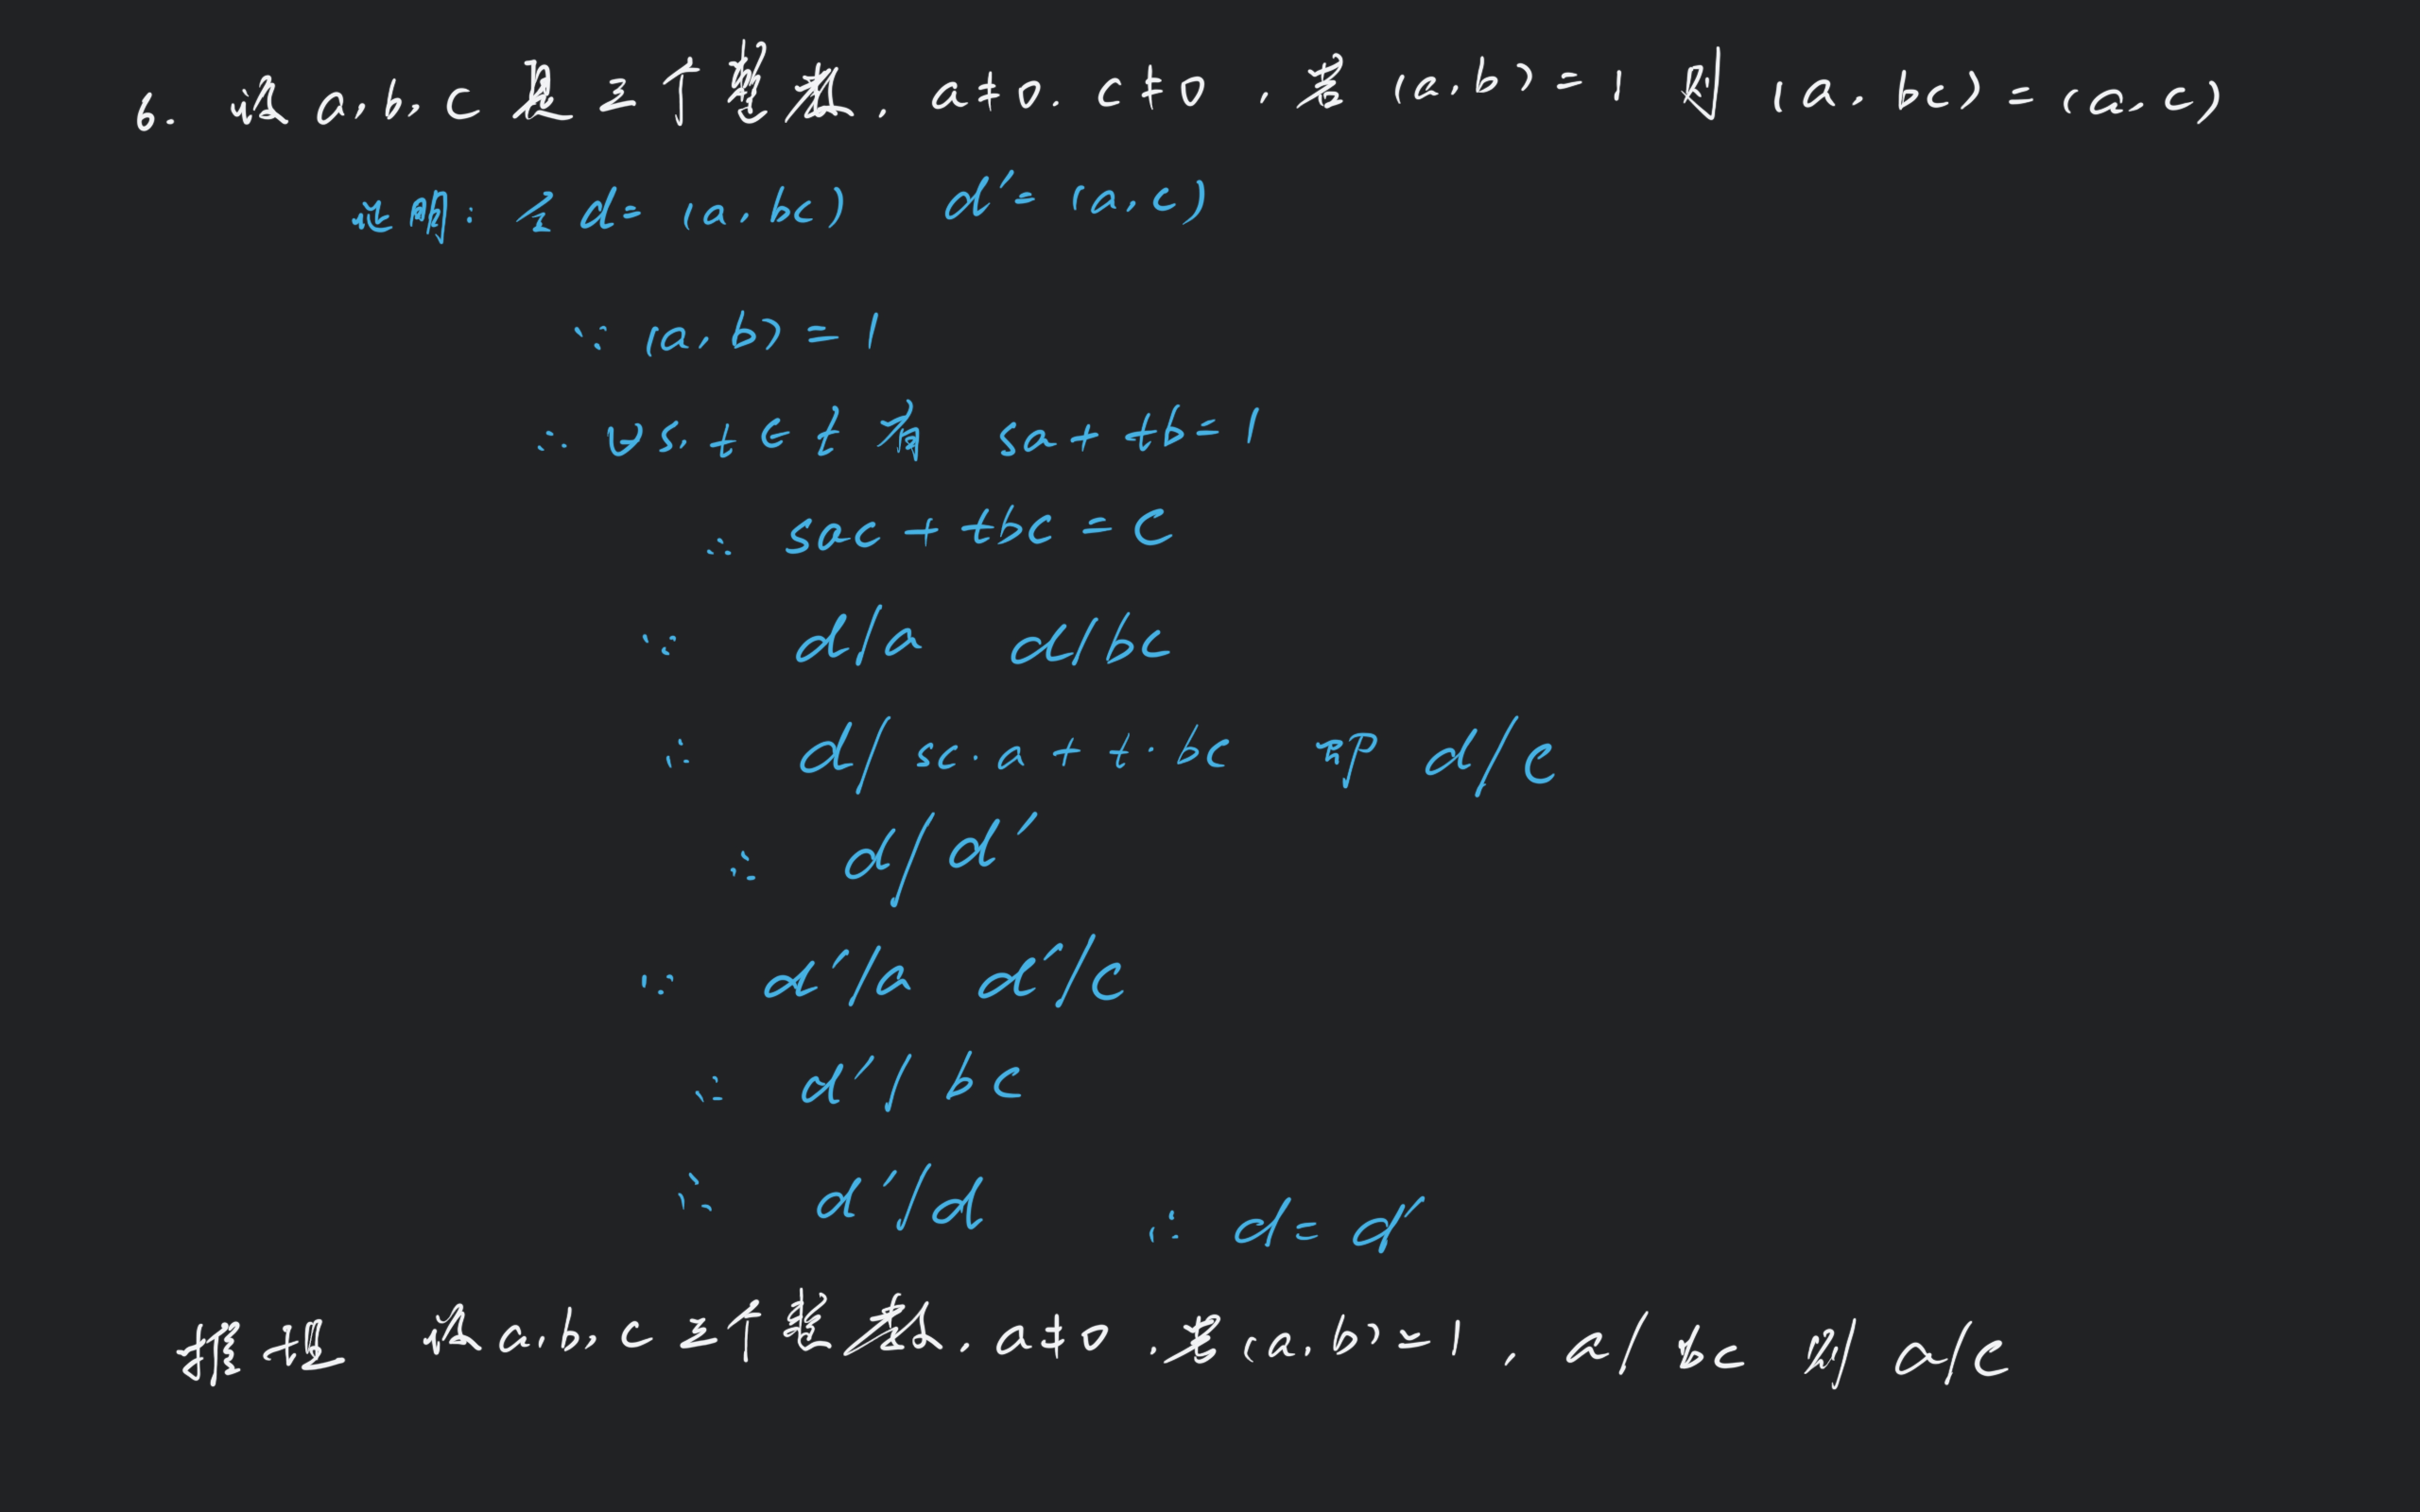 6. 设 a, b, c 是三个整数, a≠0. c≠0, 若 (a,b)=1 则 (a, bc)=(a, c)
证明: 全 d= (a, bc) d′= (a, c)
∵ (a, b) = 1
∴ s, t ∈ 有 sa + tb = 1
∴ sac + tbc = c
∵ d/a d/bc
∴ d/ sc·a + t·bc 即 d/c
∴ d/d′
∵ d′/a d′/c
∴ d′/ bc
∴ d′/d ∴ d = d′
推理 设 a, b, c 三个整数, a≠0. 若 (a, b) = 1, a/ bc 则 a/c